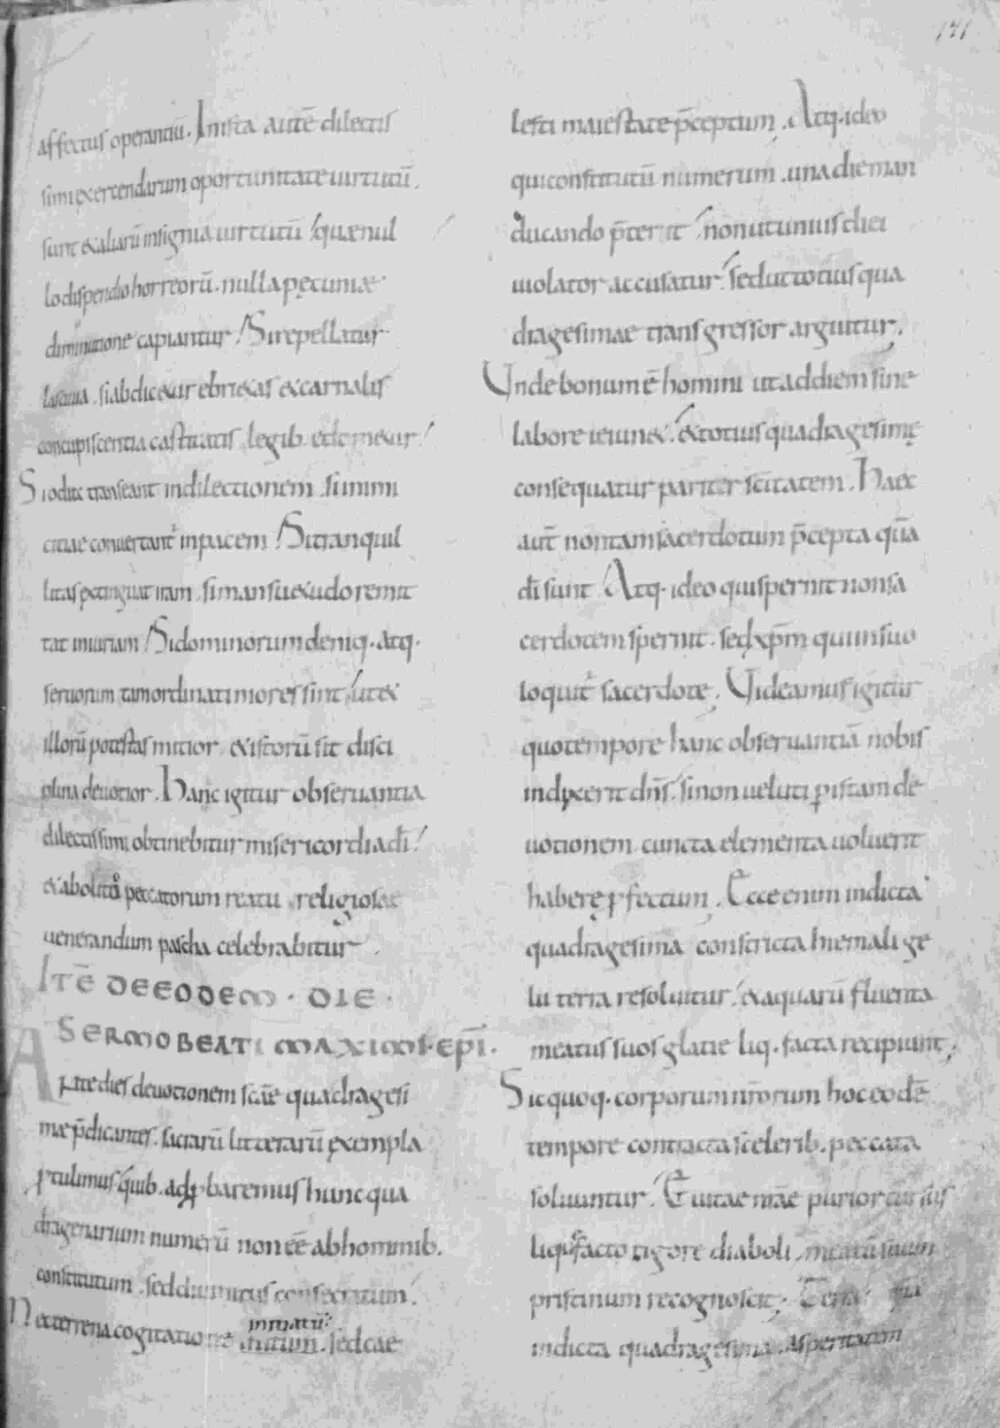 171
affectus operantiũ. Inista autẽ dilectis
simi exercendarum oportunitate uirtutũ.
sunt & aliarũ insignia uirtutũ quæ nul
lo dispendio horreorũ. nulla pęcuniæ
diminutione capiantur. Si repellatur
lasciuia. si abdicetur ebrietas & carnalis
concupiscentia castitatis legib. edometur.
Si odia transeant in dilectionem. si inimi
citiae conuertant in pacem. Si tranquil
litas extinguat iram. si mansuetudo remit
tat iniuriam. Si dominorum deniq. atq.
seruorum tam ordinati mores sint ut et
illorũ potestas mitior. & istorũ sit disci
plina deuotior. Hanc igitur obseruantia
dilectissimi obtinebitur misericordia di
& abolito peccatorum reatu religiose
uenerandum pascha celebrabitur.
ITẼ DE EODEM. DIE.
SERMO BEATI MAXIMI. EPI.
Ante dies deuotionem scae quadragesi
mæ p̃dicantes. sacrarũ litterarũ exempla
ptulimus quib. adp̱baremus hunc qua
dragenarium numerũ non eẽ ab hominib.
constitutum. sed diuinitus consecratum.
Nec terrena cogitatione initiatũ
initium. sed cae
lesti maiestate p̃ceptum. Atq. ideo
qui constitutũ numerum. una die man
ducando p̃terit non ut unius diei
uiolator accusatur. sed ut totius qua
dragesimae transgressor arguitur.
Unde bonum ẽ homini ut ad diem sine
labore ieiunet. & totius quadragesimę
consequatur pariter scitatem. Haec
aut̃ non tam sacerdotum p̃cepta quã
di sunt Atq. ideo qui spernit non sa
cerdotem spernit. sed xpm qui in suo
loquit sacerdote. Uideamus igitur
quo tempore hanc obseruantiã nobis
indixerit dñs. si non ueluti p istam de
uotionem cuncta elementa uoluerit
habere pfectum. Ecce enim indicta
quadragesima constricta hiemali ge
lu terra resoluitur. & aquarũ fluenta
meatus suos glacie liq.facta recipiunt.
Sic quoq. corporum nrorum hoc eodẽ
tempore contracta scelerib. peccata
soluuntur. Et uitae nrae purior cursus
liquefacto rigore diaboli. meatũ suum
pristinum recognoscit. Terra
indicta quadragesima. asperitatem